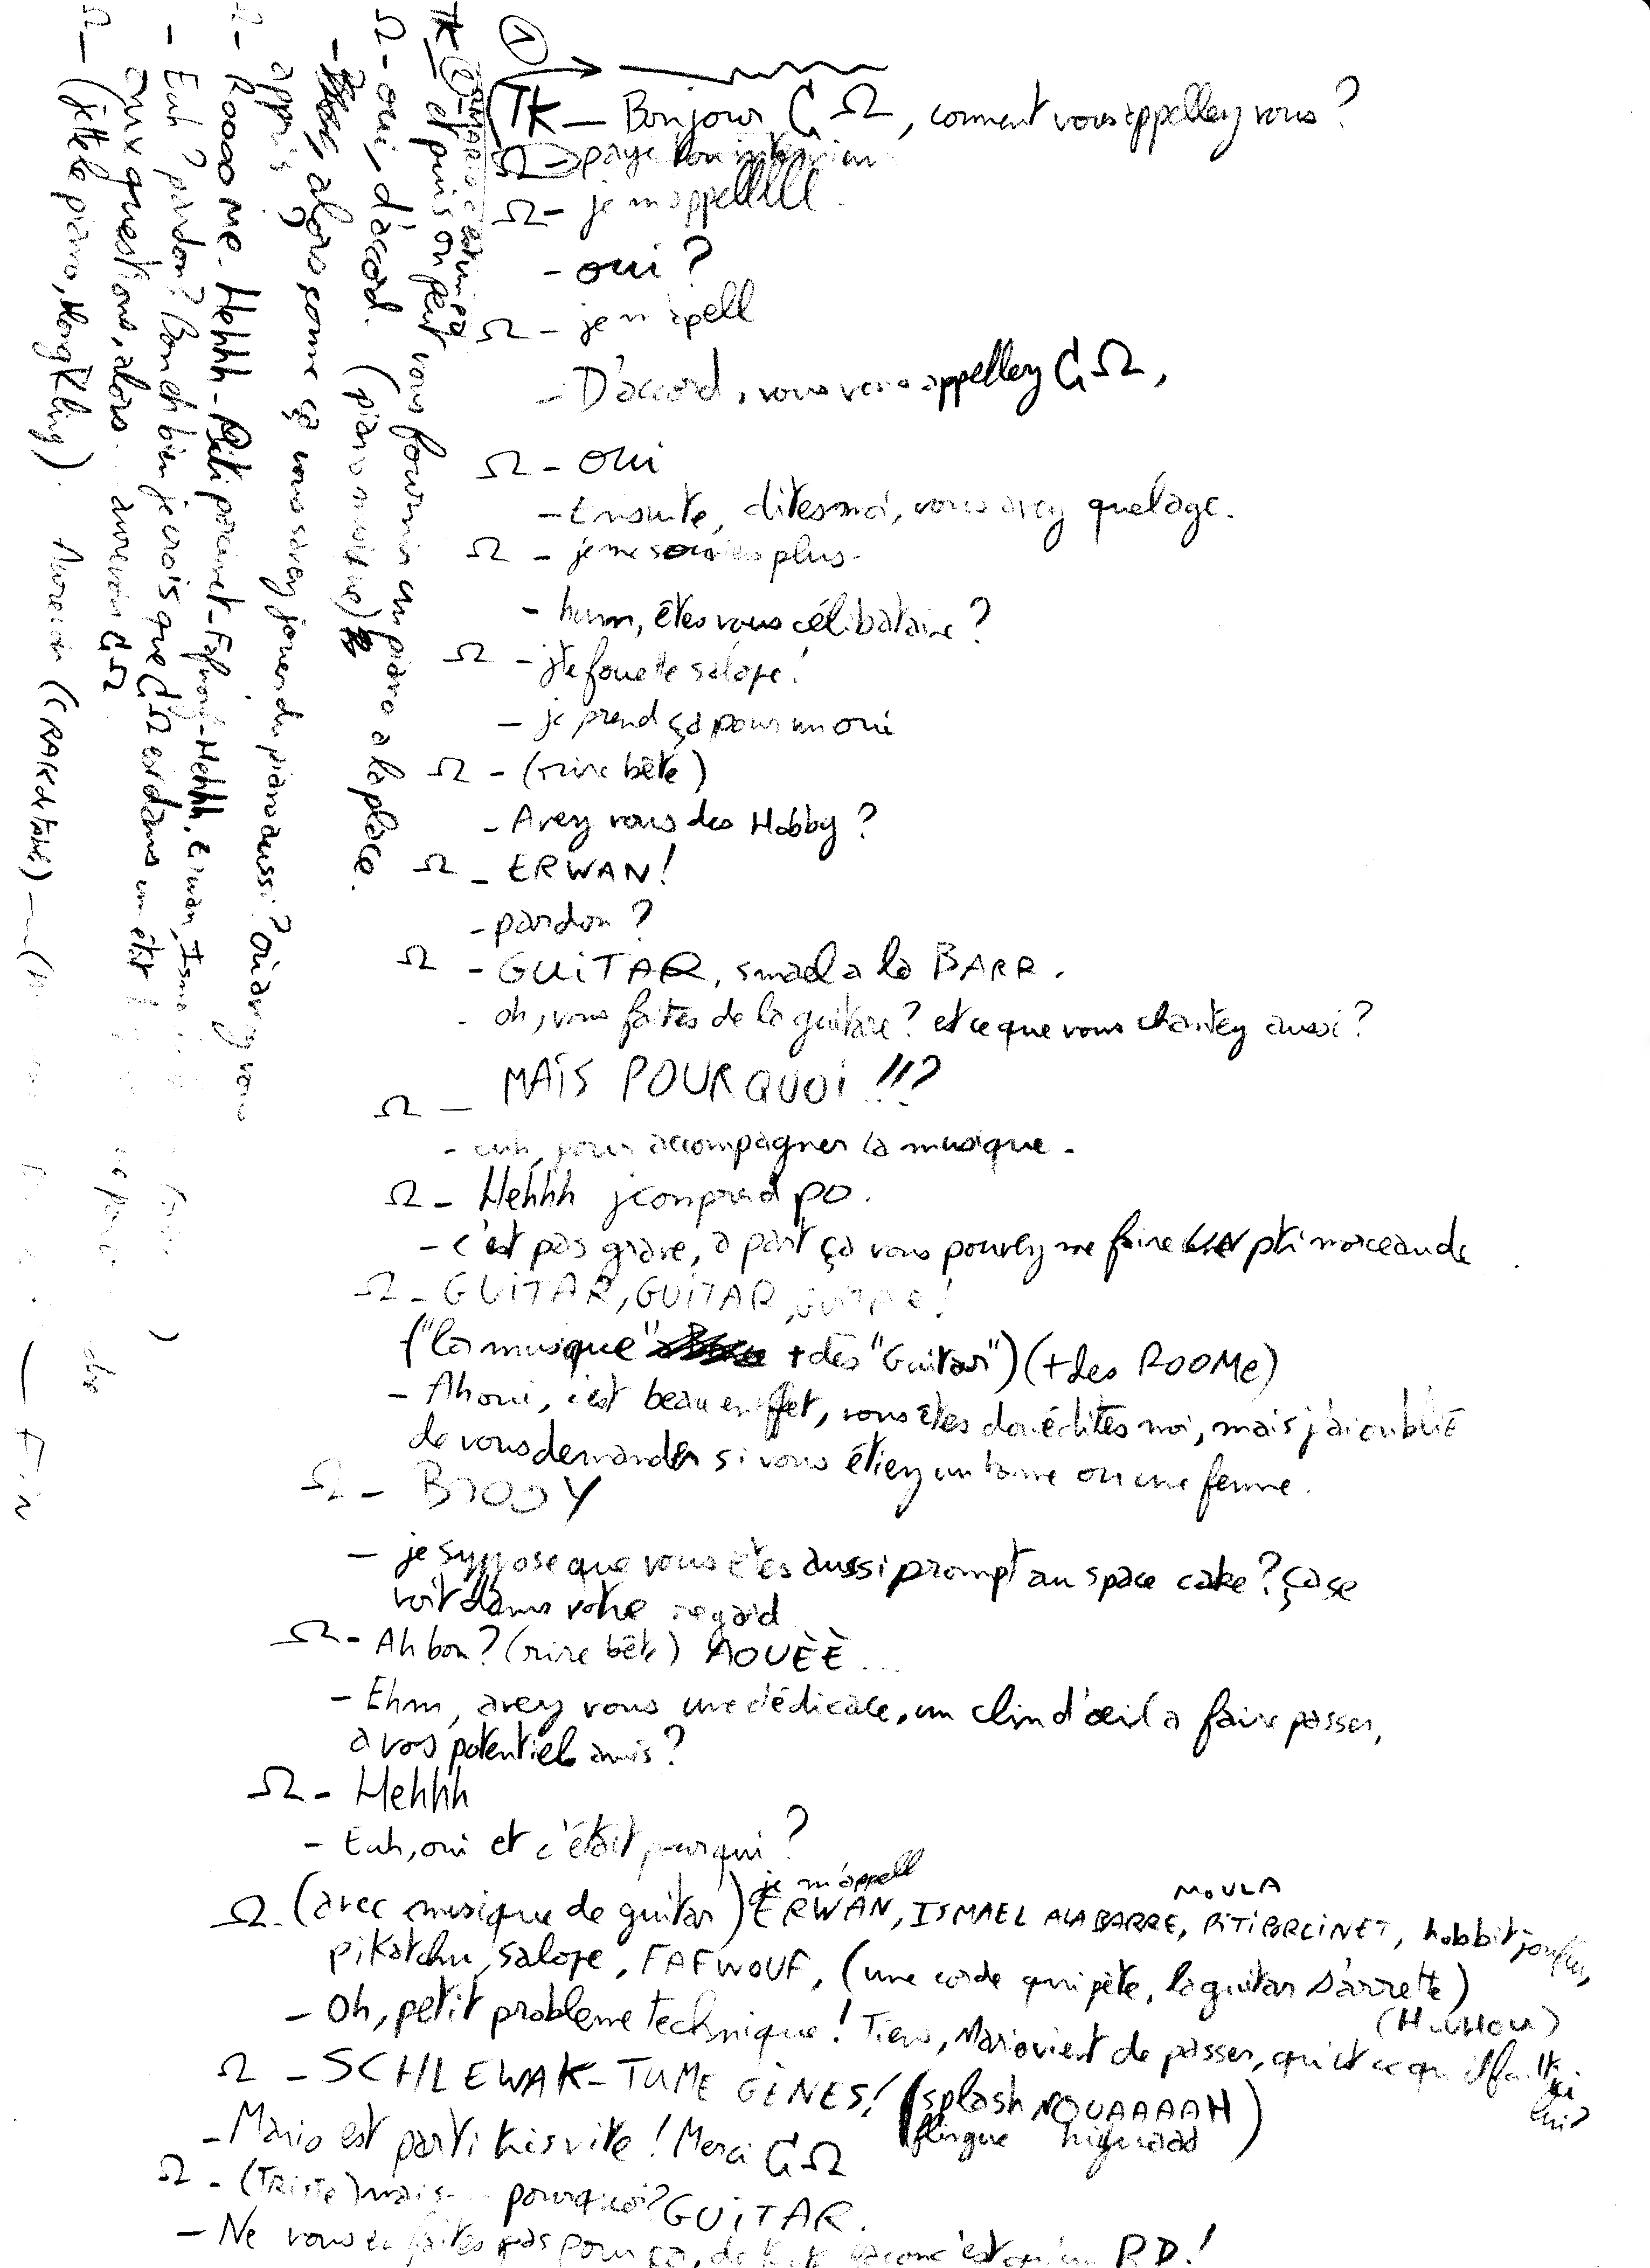 ①
TK – Bonjour GΩ, comment vous appelley vous ?
Ω – paye ton
Ω – je m'appellllll
– oui ?
Ω – je m'apell
– D'accord, vous vous appelley GΩ,
Ω – oui
– Ensuite, dites moi, vous avey quel age.
Ω – je me souviens plus.
– hum, êtes vous célibataire ?
Ω – j'te fouette salope !
– je prend ça pour un oui
Ω – (rire bête)
– Avey vous des Hobby ?
Ω – ERWAN !
– pardon ?
Ω – GUiTAR, smael a la BARR.
– oh, vous faites de la guitare ? et ce que vous chantey aussi ?
Ω – MAiS POURQUOi !!?
– euh, pour accompagner la musique.
Ω – Hehhh j'comprend po.
– c'est pas grave, a part ça vous pouvey me faire un pti morceau de
Ω – GUiTAR, GUiTAR, GUiTAR !
("la musique" + des "Guitar") (+ des ROOMe)
– Ah oui, c'est beau en effet, vous êtes doué dites moi, mais j'ai oublié
de vous demander si vous étiey un homme ou une femme.
Ω – BOOOY
– je suppose que vous êtes aussi prompt au space cake ? ça se
voit dans votre regard
Ω – Ah bon ? (rire bête) AOUÈÈ ...
– Ehm, avey vous une dédicace, un clin d'œil a faire passer,
a vos potentiels amis ?
Ω – Hehhh
– Euh, oui et c'était pour qui ?
je m'appell
MOULA
Ω – (avec musique de guitar) ERWAN, ISMAEL A LA BARRE, PiTiPORCiNET, hobbit joufflu,
pikatchu, salope, FAFWOUF, (une corde qui pète, la guitar s'arrette)
– Oh, petit probleme technique ! Tiens, Mario vient de passer, qu'est ce qu'il fait ici
lui ?
(HOUHOU)
Ω – SCHLEWAK – TU ME GÈNES ! (splash NOUAAAAH)
flingue
– Mario est parti très vite ! Merci GΩ
Ω – (TRiSTE) mais... pourquoi ? GUiTAR.
– Ne vous en faites pas pour ça, c'est qu'un PD !
TK – et puis on peut vous fournir un piano a la place.
Ω – oui, d'accord. (piano arrive)
– alors comme ça vous savey jouer du piano aussi ? Où avey vous
appris ?
Ω – Roooo me. Hehhh – Pitiporcinet – Fafwouf – Hehhh, Erwan, Isma
– Euh ? pardon ? Bon eh bien je crois que GΩ est dans un état
aux questions, alors. aurevoir GΩ
Ω – (jette le piano, Klong Kling). Aurevoir (CRAK de table) –
Fin